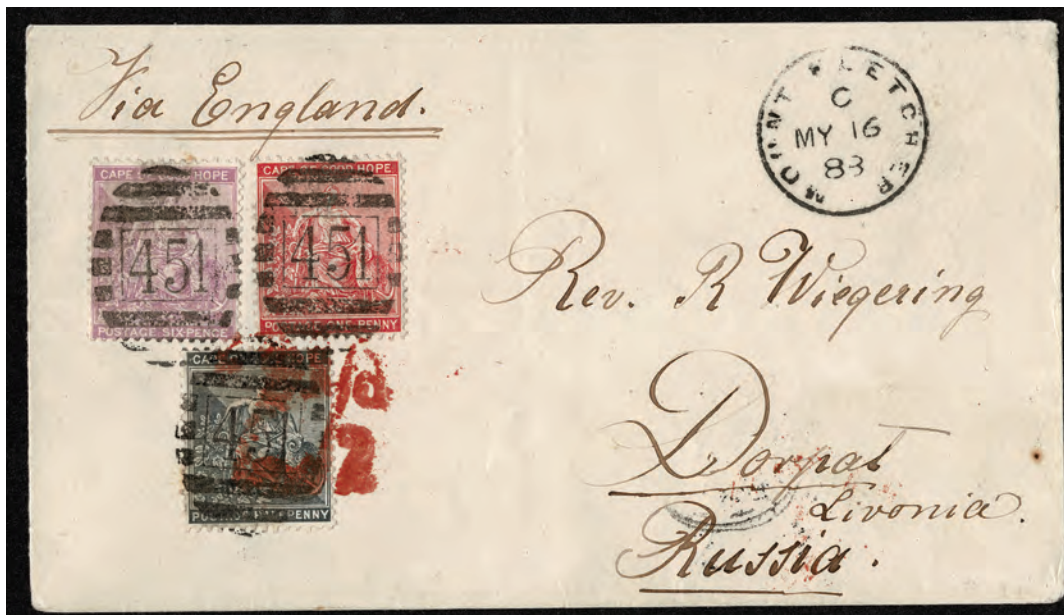 Via England.
MOUNT FLETCHER
C
MY 16
83
CAPE OF GOOD HOPE
451
POSTAGE SIX-PENCE
CAPE OF GOOD HOPE
451
POSTAGE ONE PENNY
Rev. R Wiegering
CAPE OF GOOD HOPE
451
POSTAGE HALFPENNY
Dorpat
Livonia.
Russia.